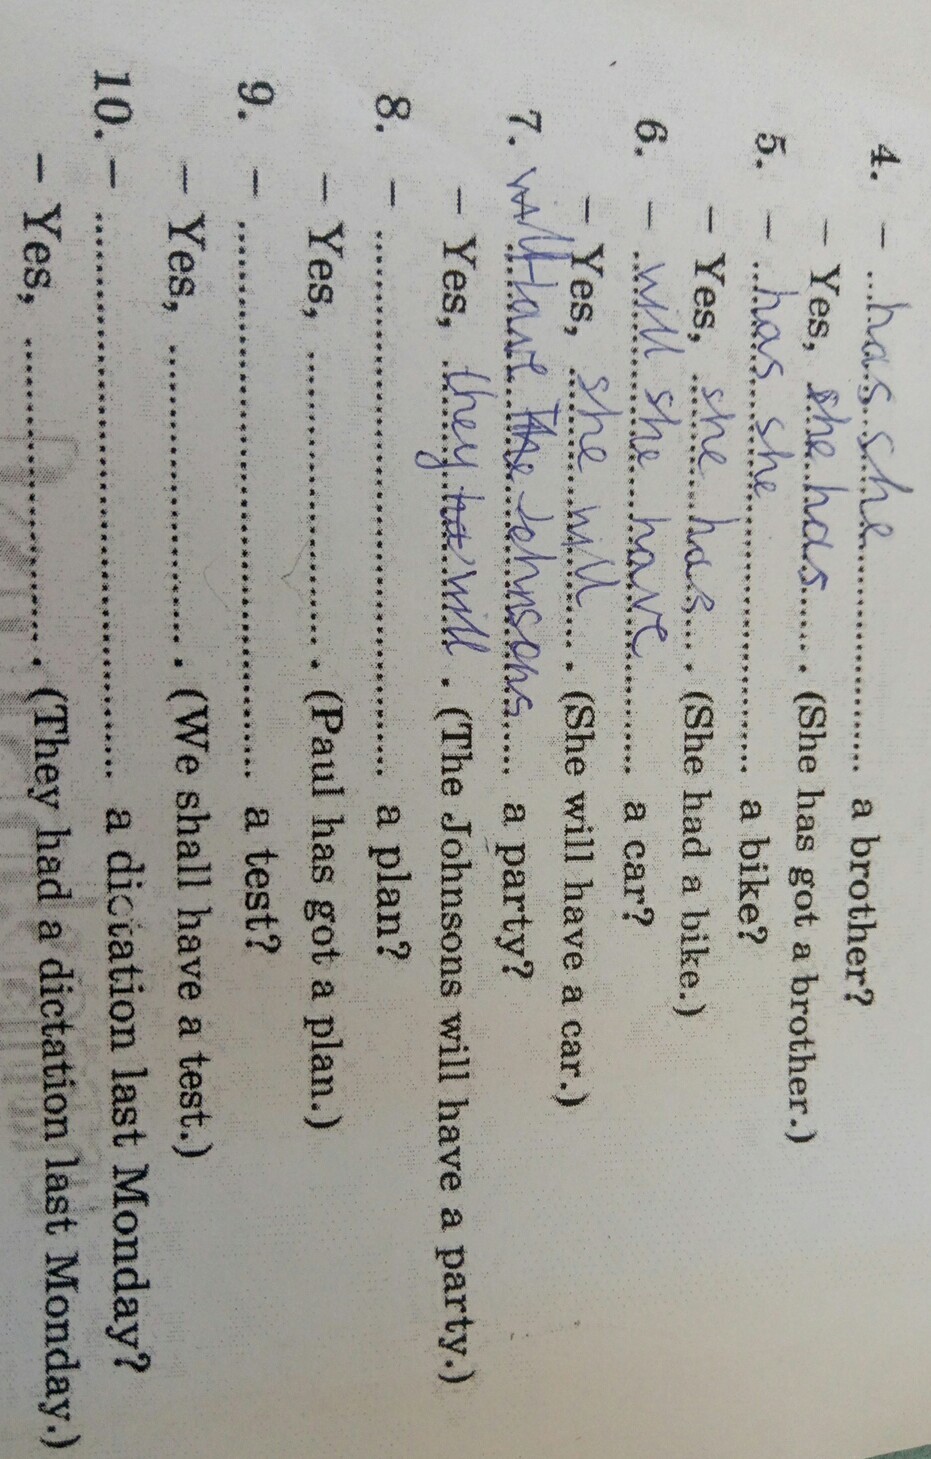 4. – ...has she........................ a brother?
– Yes, she has....... . (She has got a brother.)
5. – ...has she........................ a bike?
– Yes, ...she has... . (She had a bike.)
6. – ..will she have............ a car?
– Yes, .she will....... . (She will have a car.)
7. will have the Johnsons.... a party?
– Yes, .they will . (The Johnsons will have a party.)
8. – .................................................. a plan?
– Yes, .......................... . (Paul has got a plan.)
9. – .................................................. a test?
– Yes, .......................... . (We shall have a test.)
10. – .................................................. a dictation last Monday?
– Yes, .......................... . (They had a dictation last Monday.)